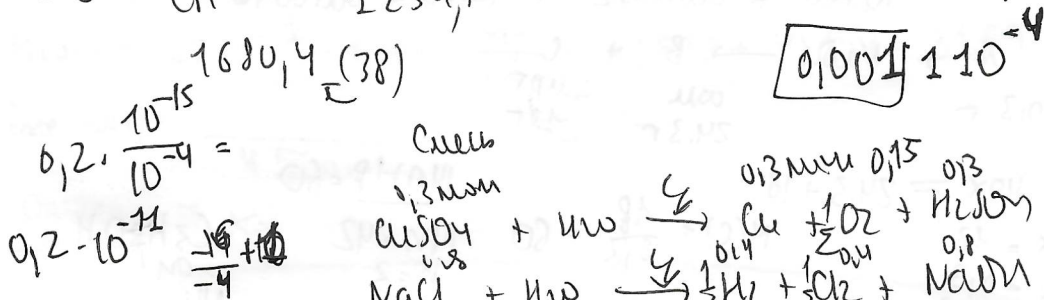 1680,4 (38)
0,001 1 10⁻⁴
0,2 · 10⁻¹⁵ / 10⁻⁴ =
Смесь
0,2 · 10⁻¹¹
0,3 моль 0,3 моль 0,15 0,3
CuSO4 + H2O → Cu + 1/2 O2 + H2SO4
0,8 0,4 0,4 0,8
NaCl + H2O → 1/2 H2 + 1/2 Cl2 + NaOH